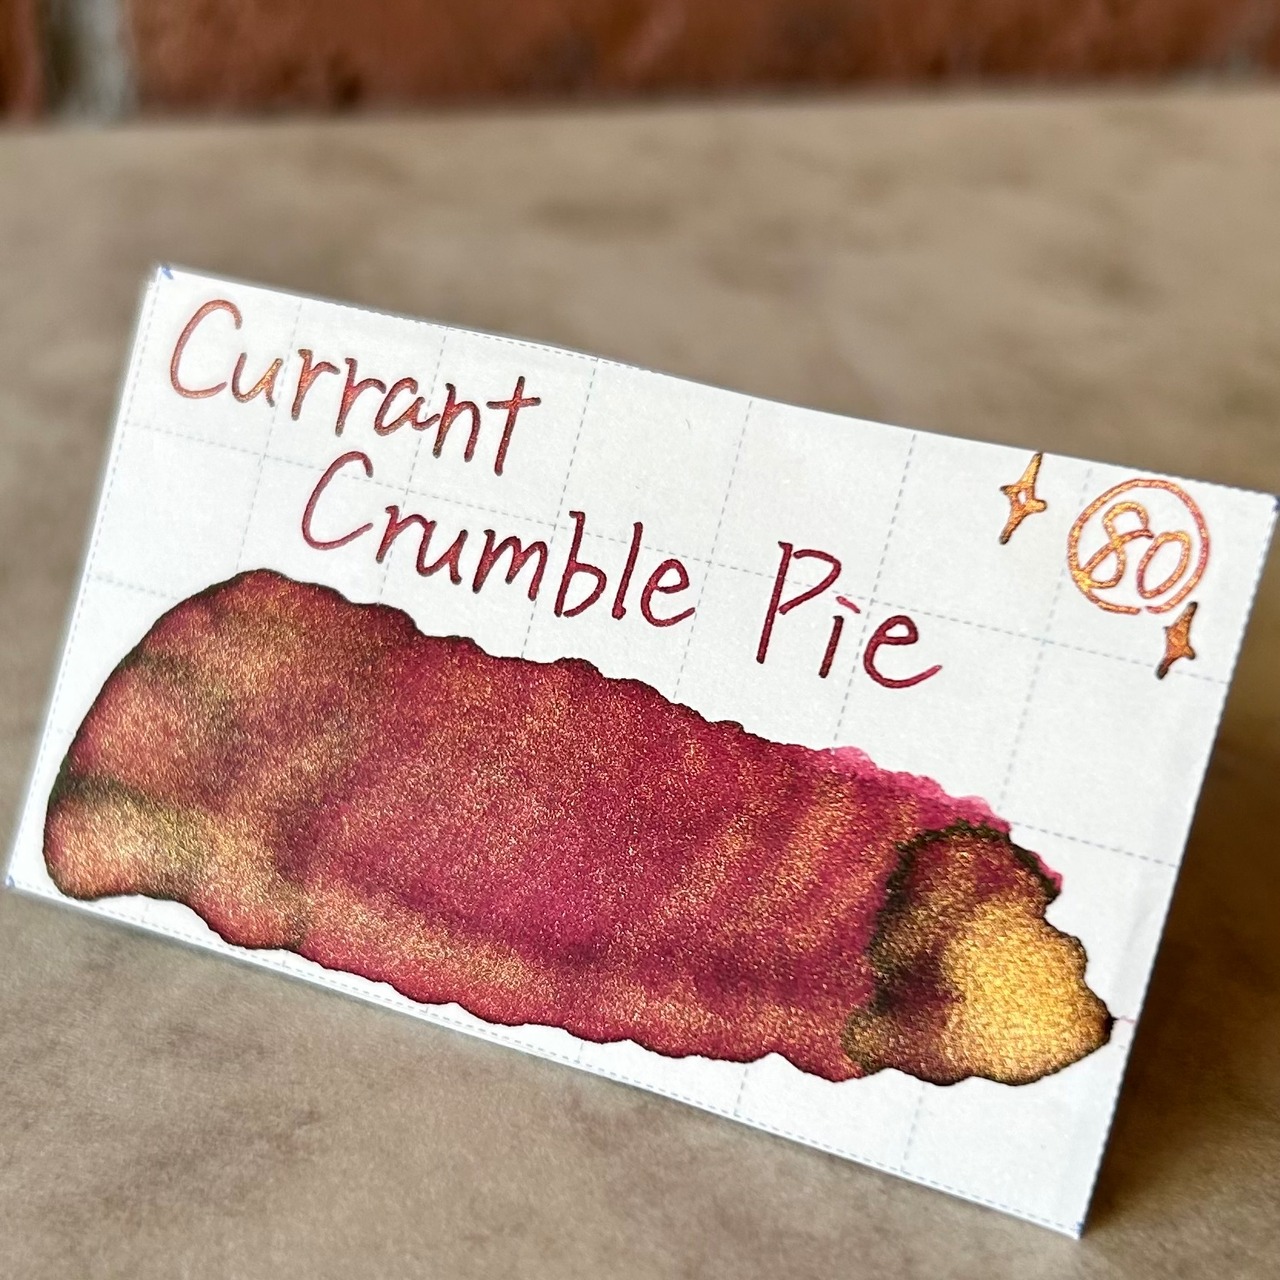 Currant
Crumble Pie
80